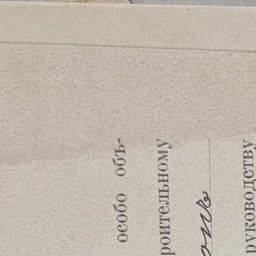 особо объ-
роительному
руководству